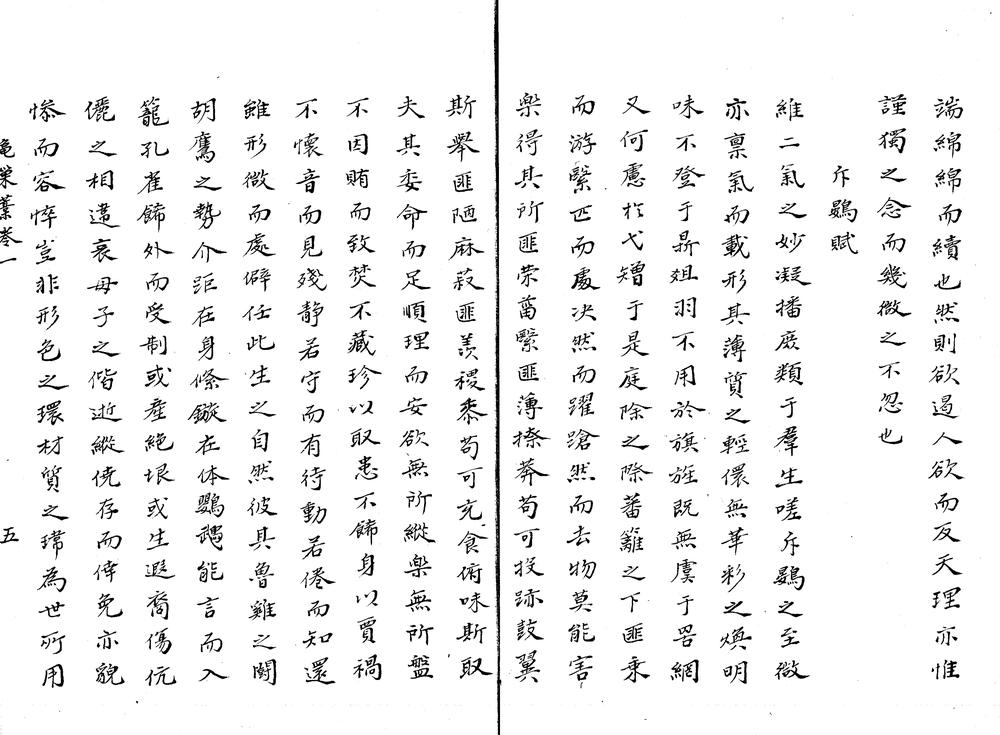 端綿綿而續也然則欲遏人欲而反天理亦惟
謹獨之念而幾微之不忽也
斥鷃賦
維二氣之妙凝播庶類于羣生嗟斥鷃之至微
亦禀氣而載形其薄質之輕儇無華彩之煥明
味不登于鼎俎羽不用於旗旌既無虞于罟網
又何慮於弋矰于是庭除之際蕃籬之下匪乗
而游緊匹而處决然而躍蹌然而去物莫能害
樂得其所匪荣蒿繄匪薄搽莽苟可投跡鼓翼
斯舉匪陋麻菽匪羨稷黍苟可充食俯啄斯取
夫其委命而足順理而安欲無所縱樂無所盤
不因賄而致焚不藏珍以取患不餙身以賈禍
不懷音而見殘静若守而有待動若倦而知還
雖形微而處僻任此生之自然彼其魯雞之鬪
胡鷹之勢介距在身絛鏇在体鸚鵡能言而入
籠孔雀餙外而受制或産絶垠或生遐裔傷伉
儷之相違哀母子之偕逝縱僥存而倖免亦貌
慘而容悴豈非形色之環材質之瑋為世所用
亀巣藁巻一
五